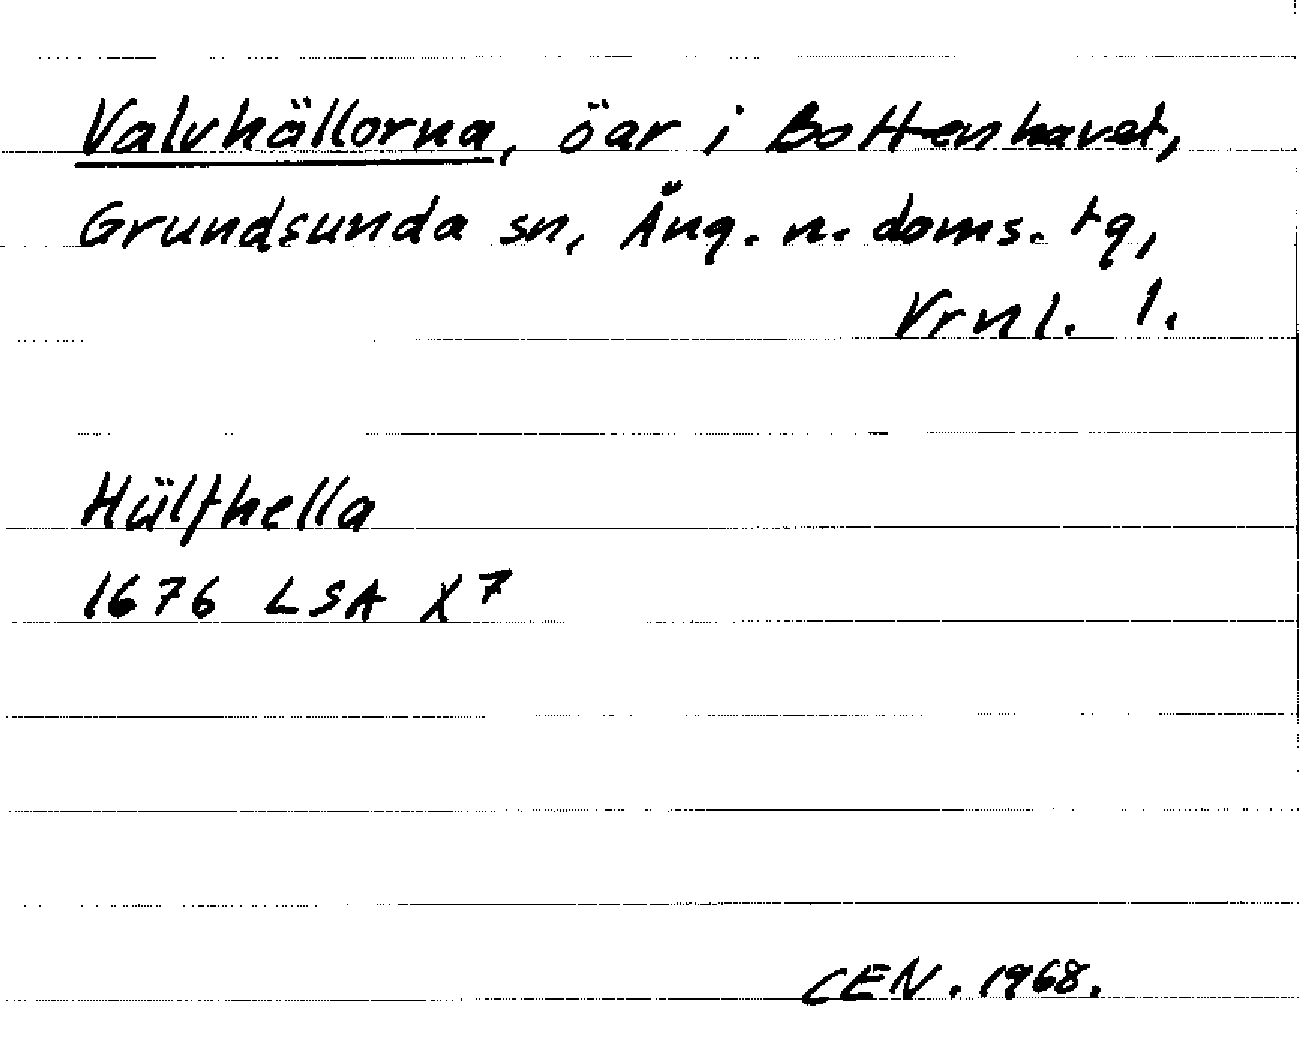 Valvhällorna, öar i Bottenhavet,
Grundsunda sn, Ång. n. doms. tg,
Vrnl. l.
Hülfhella
1676 LSA X 7
CEN. 1968.